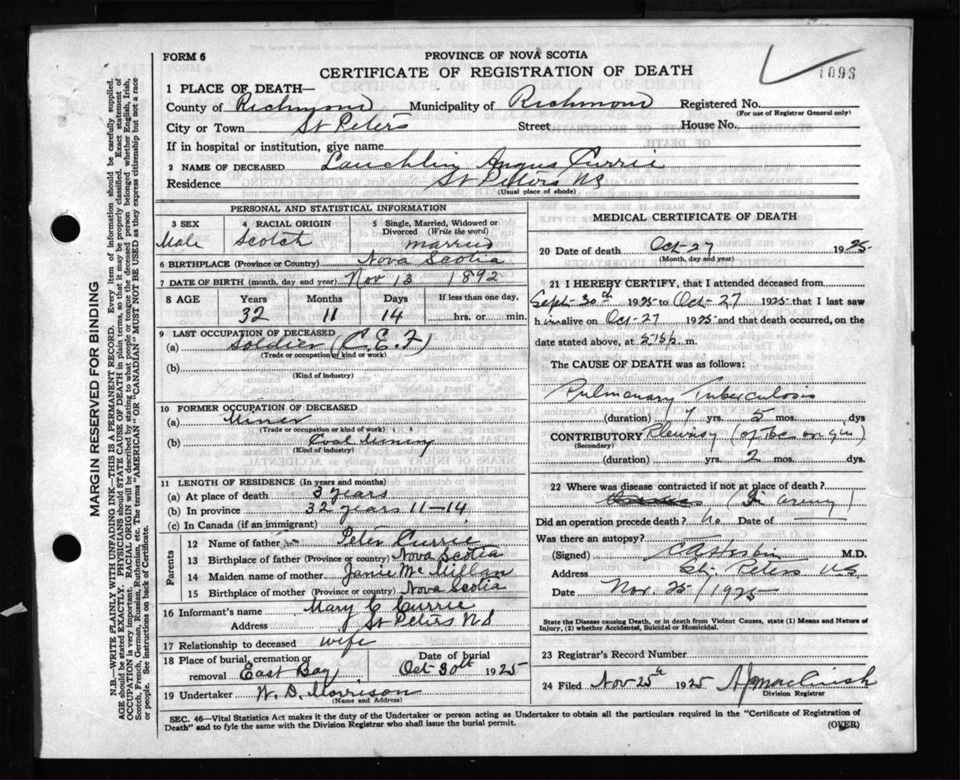 FORM 6
PROVINCE OF NOVA SCOTIA
CERTIFICATE OF REGISTRATION OF DEATH
1093
1 PLACE OF DEATH—
County of Richmond Municipality of Richmond Registered No.
(For use of Registrar General only)
City or Town St Peters Street House No.
If in hospital or institution, give name
2 NAME OF DECEASED Lauchlin Angus Currie
Residence St Peters NS
(Usual place of abode)
PERSONAL AND STATISTICAL INFORMATION
3 SEX 4 RACIAL ORIGIN 5 Single, Married, Widowed or Divorced (Write the word)
Male Scotch married
6 BIRTHPLACE (Province or Country) Nova Scotia
7 DATE OF BIRTH (month, day and year) Nov 13 1892
8 AGE Years Months Days If less than one day,
32 11 14 hrs. or min.
9 LAST OCCUPATION OF DECEASED
(a) Soldier (C.E.F)
(Trade or occupation or kind or work)
(b)
(Kind of industry)
10 FORMER OCCUPATION OF DECEASED
(a) Miner
(Trade or occupation or kind of work)
(b) Coal Mining
(Kind of industry)
11 LENGTH OF RESIDENCE (In years and months)
(a) At place of death 3 years
(b) In province 32 years 11-14
(c) In Canada (if an immigrant)
Parents
12 Name of father Peter Currie
13 Birthplace of father (Province or country) Nova Scotia
14 Maiden name of mother Janie McMillan
15 Birthplace of mother (Province or country) Nova Scotia
16 Informant's name Mary C Currie
Address St Peters N S
17 Relationship to deceased wife
18 Place of burial, cremation or removal East Bay Date of burial Oct 30th 1925
19 Undertaker W. D. Morrison
(Name and Address)
MEDICAL CERTIFICATE OF DEATH
20 Date of death Oct-27 1925
(Month, day and year)
21 I HEREBY CERTIFY, that I attended deceased from
Sept-30th 1925 to Oct-27 1925 that I last saw
h im alive on Oct-27 1925 and that death occurred, on the
date stated above, at m.
The CAUSE OF DEATH was as follows:
Pulmonary Tuberculosis
(duration) 7 yrs. 5 mos. dys
CONTRIBUTORY Pleurisy (of Tbc origin)
(Secondary)
(duration) yrs. 2 mos. dys.
22 Where was disease contracted if not at place of death?
(In army)
Did an operation precede death? No Date of —
Was there an autopsy?
(Signed) M.D.
Address St. Peters N.S.
Date Nov. 25/1925
State the Disease causing Death, or in death from Violent Causes, state (1) Means and Nature of Injury, (2) whether Accidental, Suicidal or Homicidal.
23 Registrar's Record Number
24 Filed Nov 25th 1925 A J MacCuish
Division Registrar
SEC. 46—Vital Statistics Act makes it the duty of the Undertaker or person acting as Undertaker to obtain all the particulars required in the "Certificate of Registration of
Death" and to fyle the same with the Division Registrar who shall issue the burial permit.
(OVER)
MARGIN RESERVED FOR BINDING
N.B.—WRITE PLAINLY WITH UNFADING INK—THIS IS A PERMANENT RECORD. Every item of information should be carefully supplied.
AGE should be stated EXACTLY. PHYSICIANS should STATE CAUSE OF DEATH in plain terms, so that it may be properly classified. Exact statement of
OCCUPATION is very important. RACIAL ORIGIN will be described by stating to what people or tongue the deceased person belonged, whether English, Irish,
Scotch, French, German, Russian, Ruthenian, etc. The terms "AMERICAN" OR "CANADIAN" MUST NOT BE USED as they express citizenship but not a race
or people. See instructions on back of Certificate.